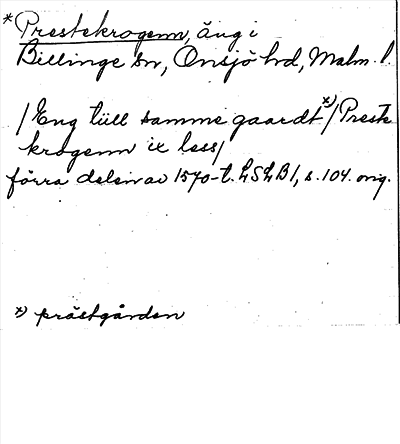 *Prestekrogenn, äng i
Billinge sn, Onsjö hd, Malm. l.
/Eng tiill samme gaardt x)/Preste
krogenn ix less/
förra delen av 1570-t. LSLB 1, s. 104. orig.
x) prästgården